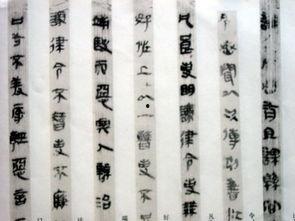 有且課縣官
丞聞以次傳別書
凡良吏明灋律令事
好佐上以一曹事不
端殹而惡與人辨治
灋律令不智事不廉
口舌不羞辱輕惡言